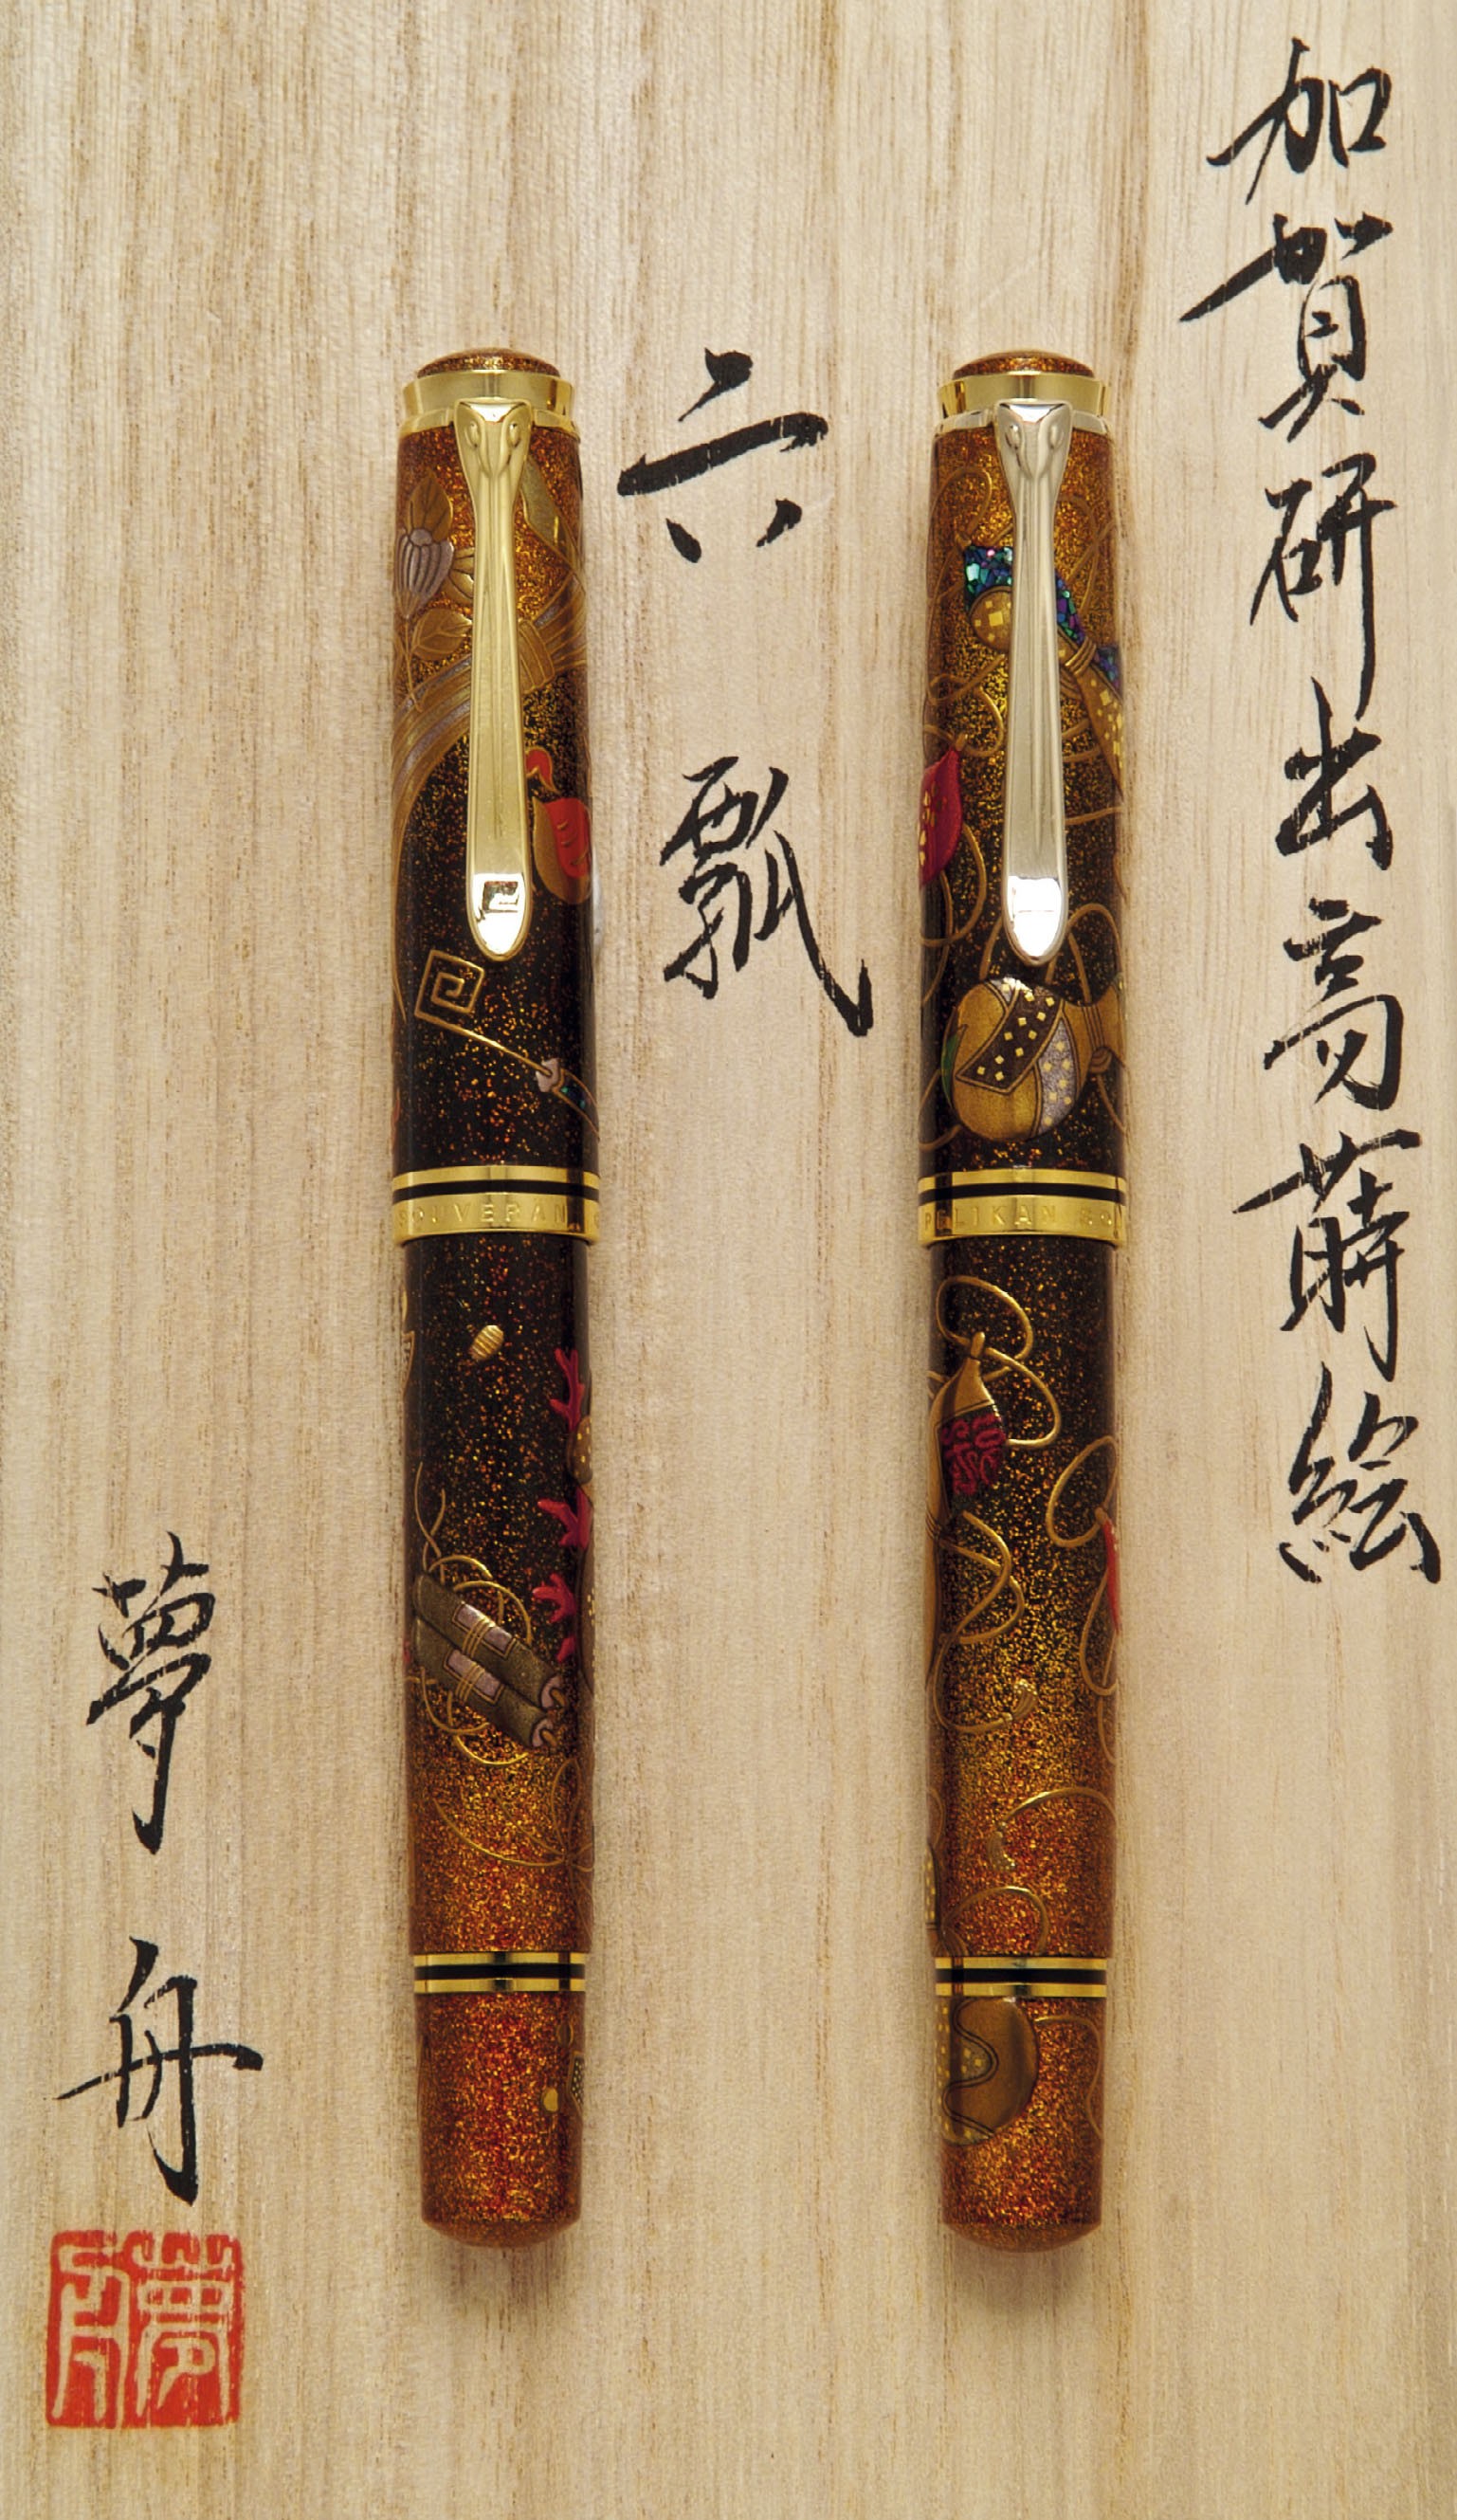 加賀研出高蒔絵
六瓢
夢舟
夢舟
SOUVERÄN
PELIKAN SOU